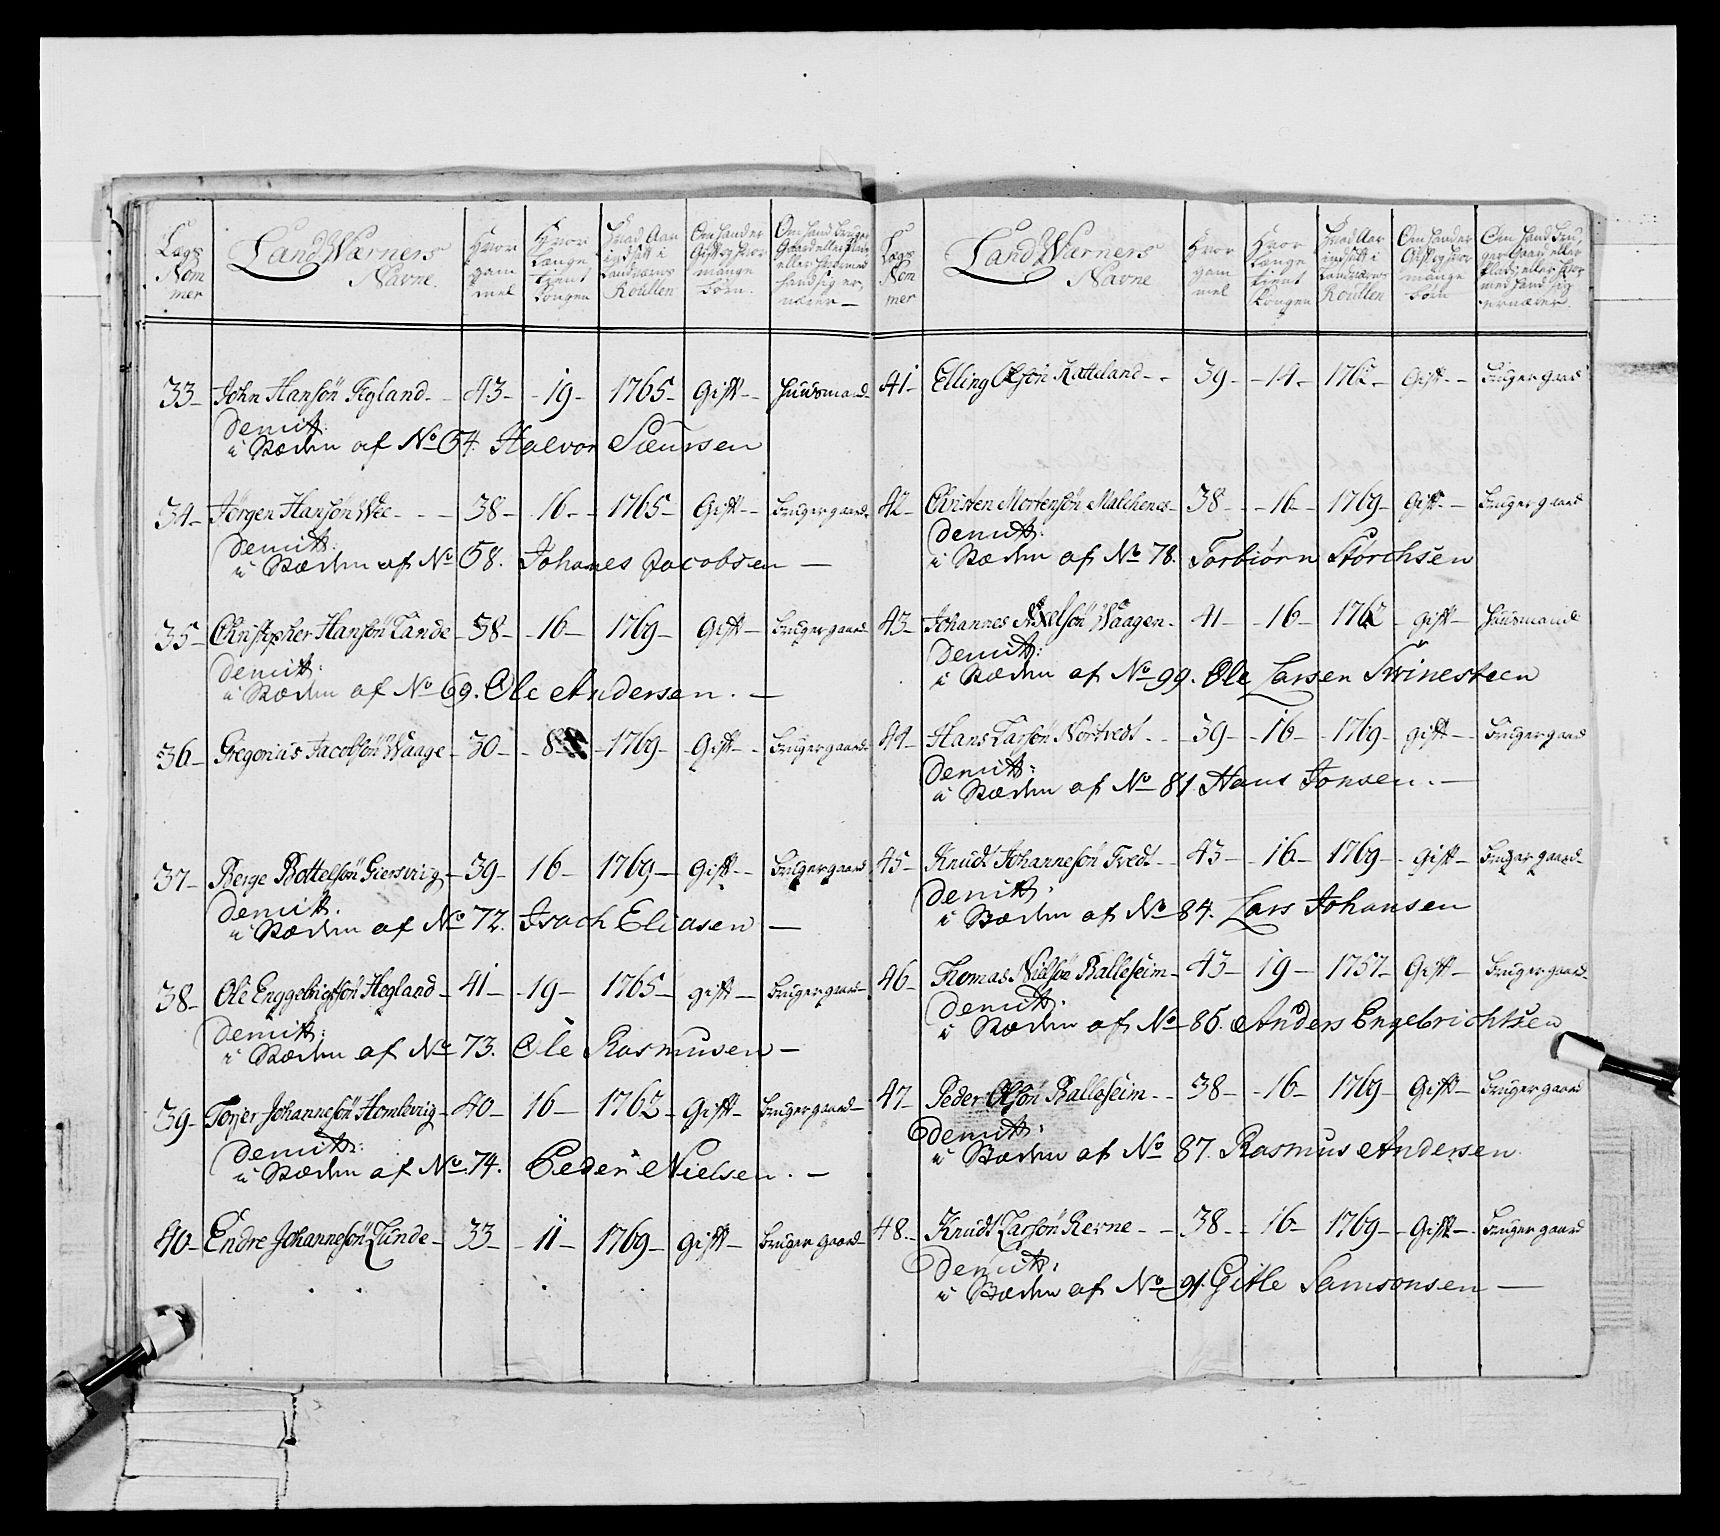 Lægs Nom mer
Land Wærners Navne.
Hvor gam mel
Hvor længe tient Kongen
Hvad Aar indsatt i Landværns Roullen
Om hand er Gift og hvor mange børn.
33 John Hansøn Figland 43 19 1765 Gift Huusmand
Demitt:
i Stæden af No 54. Halvor Siursen
34 Jørgen Hansøn Wee 38 16 1765 Gift Bruger gaard
Demitt:
i Stæden af No 58. Johanes Jacobsen
35 Christopher Hansøn Lande 38 16 1769 Gift Bruger gaard
Demitt:
i Stæden af No 69. Ole Andersen.
36 Gregorius Jacobsøn Waage 30 8 1769 Gift Bruger gaard
37 Berge Bottelsøn Giersvrig 39 16 1769 Gift Bruger gaard
Demitt.
i Stæden af No 72. Isach Eliasen
38 Ole Enggebrigtsøn Hegland 41 19 1765 gift Bruger gaard
Demitt:
i Stæden af No 73. Ole Rasmusen
39 Torjer Johannesøn Homlevrig 40 16 1762 Gift Bruger gaard
Demitt:
i Stæden af No 74. Peder Nielsen.
40 Endre Johannesøn Lunde 33 11 1769 gift Bruger gaard
Lægs Nom mer
Land Wærners Navne
Hvor gam mel
Hvor længe tient Kongen
Hvad Aar indsatt i Landværns Roullen
Om hand er Gift og hvor mange børn
41 Elling Olsøn Ratteland 39 14 1762 Gift Bruger gaard
42 Christen Mortensøn Malchenes 38 16 1769 Gift Bruger gaard
Demitt:
i Stæden af No 78. Torbiørn Storchsen
43 Johannes Axelsøn Waagen 41 16 1762 gift Huusmand
Demitt:
i Stæden af No 99. Ole Larsen Svinesteen
44 Hans Larsøn Nortvedt 39 16 1769 gift Bruger gaard
Demitt:
i Stæden af No 81 Hans Jonsen.
45 Knudt Johannesøn Tvedt 43 16 1769 gift Bruger gaard
Demitt.
i Stæden af No 84. Lars Johansen
46 Thomas Nielsøn Balleseim 43 19 1757 Gift Bruger gaard
Demitt.
i Stæden af No 86. Anders Engebrichtsen
47 Peder Olsøn Balleseim 38 16 1769 Gift Bruger gaard
Demitt:
i Stæden af No 87. Rasmus Andersen.
48. Knudt Larsøn Revne 38 16 1769 Gift Bruger gaard
Demitt:
i Stæden af No 91. Gitle Samsonsen